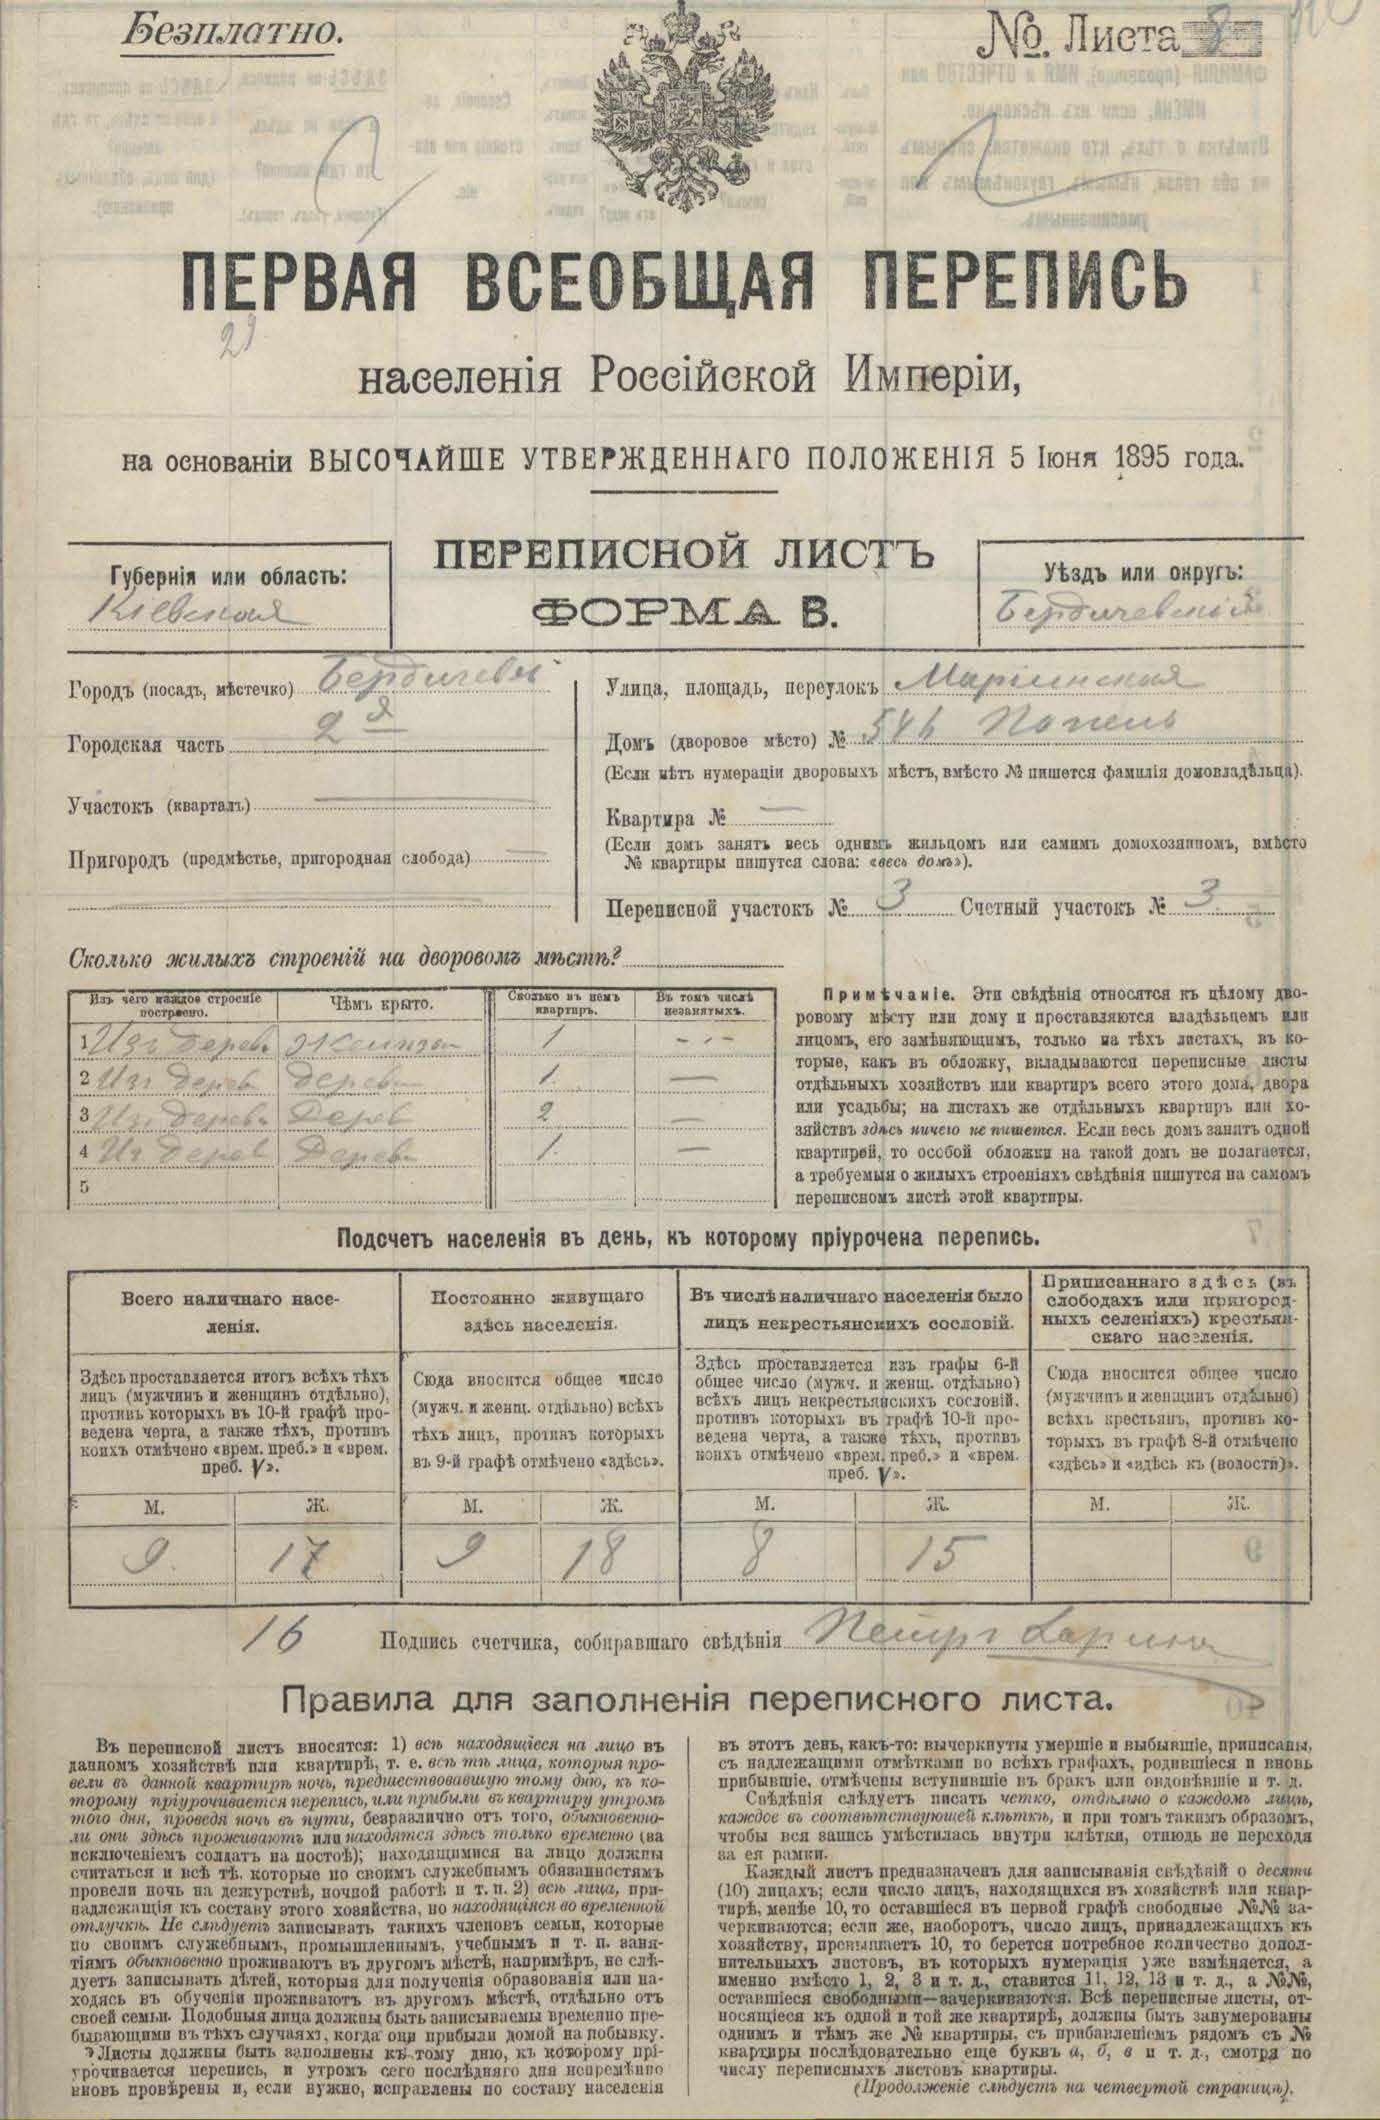 Безплатно.
№. Листа 8
ПЕРВАЯ ВСЕОБЩАЯ ПЕРЕПИСЬ
29
населенія Россійской Имперіи,
на основаніи ВЫСОЧАЙШЕ УТВЕРЖДЕННАГО ПОЛОЖЕНІЯ 5 Іюня 1895 года.
ПЕРЕПИСНОЙ ЛИСТЪ
ФОРМА В.
Губернія или область:
Кіевская
Уѣздъ или округъ:
Бердичевскій
Городъ (посадъ, мѣстечко) Бердичевъ
Городская часть 2я
Участокъ (кварталъ) —
Пригородъ (предмѣстье, пригородная слобода) —
Улица, площадь, переулокъ Маріинская
Домъ (дворовое мѣсто) № 546
(Если нѣтъ нумераціи дворовыхъ мѣстъ, вмѣсто № пишется фамилія домовладѣльца).
Квартира № —
(Если домъ занятъ весь однимъ жильцомъ или самимъ домохозяиномъ, вмѣсто
№ квартиры пишутся слова: «весь домъ»).
Переписной участокъ № 3 Счетный участокъ № 3
Сколько жилыхъ строеній на дворовомъ мѣстѣ?
Изъ чего каждое строеніе построено. Чѣмъ крыто. Сколько въ немъ квартиръ. Въ томъ числѣ незанятыхъ.
1 Изъ дерева 1 —
2 Изъ дерев дерев 1. —
3 Изъ дерева Дерев 2 —
4 Из дерев Дерев 1. —
5
Примѣчаніе. Эти свѣдѣнія относятся къ цѣлому дво-
ровому мѣсту или дому и проставляются владѣльцемъ или
лицомъ, его замѣняющимъ, только на тѣхъ листахъ, въ ко-
торые, какъ въ обложку, вкладываются переписные листы
отдѣльныхъ хозяйствъ или квартиръ всего этого дома, двора
или усадьбы; на листахъ же отдѣльныхъ квартиръ или хо-
зяйствъ здѣсь ничего не пишется. Если весь домъ занятъ одной
квартирой, то особой обложки на такой домъ не полагается,
а требуемыя о жилыхъ строеніяхъ свѣдѣнія пишутся на самомъ
переписномъ листѣ этой квартиры.
Подсчетъ населенія въ день, къ которому пріурочена перепись.
Всего наличнаго насе-
ленія.
Здѣсь проставляется итогъ всѣхъ тѣхъ
лицъ (мужчинъ и женщинъ отдѣльно),
противъ которыхъ въ 10-й графѣ про-
ведена черта, а также тѣхъ, противъ
коихъ отмѣчено «врем. преб.» и «врем.
преб. V».
М. Ж.
9. 17
Постоянно живущаго
здѣсь населенія.
Сюда вносится общее число
(мужч. и женщ. отдѣльно) всѣхъ
тѣхъ лицъ, противъ которыхъ
въ 9-й графѣ отмѣчено «здѣсь».
М. Ж.
9 18
Въ числѣ наличнаго населенія было
лицъ некрестьянскихъ сословій.
Здѣсь проставляется изъ графы 6-й
общее число (мужч. и женщ. отдѣльно)
всѣхъ лицъ некрестьянскихъ сословій,
противъ которыхъ въ графѣ 10-й про-
ведена черта, а также тѣхъ, противъ
коихъ отмѣчено «врем. преб.» и «врем.
преб. V».
М. Ж.
8 15
Приписаннаго здѣсь (въ
слободахъ или пригород-
ныхъ селеніяхъ) крестьян-
скаго населенія.
Сюда вносится общее число
(мужчинъ и женщинъ отдѣльно)
всѣхъ крестьянъ, противъ ко-
торыхъ въ графѣ 8-й отмѣчено
«здѣсь» и «здѣсь къ (волости)».
М. Ж.
16
Подпись счетчика, собиравшаго свѣдѣнія Петръ
Правила для заполненія переписного листа.
Въ переписной листъ вносятся: 1) всѣ находящіеся на лицо въ
данномъ хозяйствѣ или квартирѣ, т. е. всѣ тѣ лица, которыя про-
вели въ данной квартирѣ ночь, предшествовавшую тому дню, къ ко-
торому пріурочивается перепись, или прибыли въ квартиру утромъ
того дня, проведя ночь въ пути, безразлично отъ того, обыкновенно-
ли они здѣсь проживаютъ или находятся здѣсь только временно (за
исключеніемъ солдатъ на постоѣ); находящимися на лицо должны
считаться и всѣ тѣ, которые по своимъ служебнымъ обязанностямъ
провели ночь на дежурствѣ, ночной работѣ и т. п. 2) всѣ лица, при-
надлежащія къ составу этого хозяйства, но находящіяся во временной
отлучкѣ. Не слѣдуетъ записывать такихъ членовъ семьи, которые
по своимъ служебнымъ, промышленнымъ, учебнымъ и т. п. заня-
тіямъ обыкновенно проживаютъ въ другомъ мѣстѣ, напримѣръ, не слѣ-
дуетъ записывать дѣтей, которыя для полученія образованія или на-
ходясь въ обученіи проживаютъ въ другомъ мѣстѣ, отдѣльно отъ
своей семьи. Подобныя лица должны быть записываемы временно пре-
бывающими въ тѣхъ случаяхъ, когда они прибыли домой на побывку.
Листы должны быть заполнены къ тому дню, къ которому прі-
урочивается перепись, и утромъ сего послѣдняго дня непремѣнно
вновь провѣрены и, если нужно, исправлены по составу населенія
въ этотъ день, какъ-то: вычеркнуты умершіе и выбывшіе, приписаны,
съ надлежащими отмѣтками во всѣхъ графахъ, родившіеся и вновь
прибывшіе, отмѣчены вступившіе въ бракъ или овдовѣвшіе и т. д.
Свѣдѣнія слѣдуетъ писать четко, отдѣльно о каждомъ лицѣ,
каждое въ соотвѣтствующей клѣткѣ, и при томъ такимъ образомъ,
чтобы вся запись умѣстилась внутри клѣтки, отнюдь не переходя
за ея рамки.
Каждый листъ предназначенъ для записыванія свѣдѣній о десяти
(10) лицахъ; если число лицъ, находящихся въ хозяйствѣ или квар-
тирѣ, менѣе 10, то оставшіеся въ первой графѣ свободные №№ за-
черкиваются; если же, наоборотъ, число лицъ, принадлежащихъ къ
хозяйству, превышаетъ 10, то берется потребное количество допол-
нительныхъ листовъ, въ которыхъ нумерація уже измѣняется, а
именно вмѣсто 1, 2, 3 и т. д., ставится 11, 12, 13 и т. д., а №№,
оставшіеся свободными—зачеркиваются. Всѣ переписные листы, от-
носящіеся къ одной и той же квартирѣ, должны быть занумерованы
однимъ и тѣмъ же № квартиры, съ прибавленіемъ рядомъ съ №
квартиры послѣдовательно еще буквъ а, б, в и т. д., смотря по
числу переписныхъ листовъ квартиры.
(Продолженіе слѣдуетъ на четвертой страницѣ).